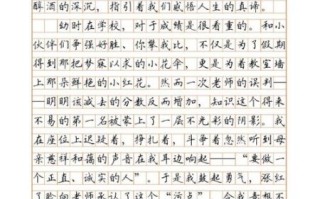 醉酒的深沉，指引着我们感悟人生的真谛。
幼时在学校，对于成绩是很看重的。和小
伙伴们争强好胜，你攀我比，不仅是为了假期
得到那把梦寐以求的小花伞，更是为着教室墙
上那朵鲜艳的小红花。然而一次老师的误判—
—明明该减去的分数反而增加，知识这个得来
不易的第一名被蒙上了一层不光彩的阴影。我
在座位上迟疑着，挣扎着，斗争着忽然听到母
亲慈祥和蔼的声音在我耳边响起——“要做一
个正直、诚实的人”。于是我鼓起勇气，涨红
了脸向老师承认了这个“污点”